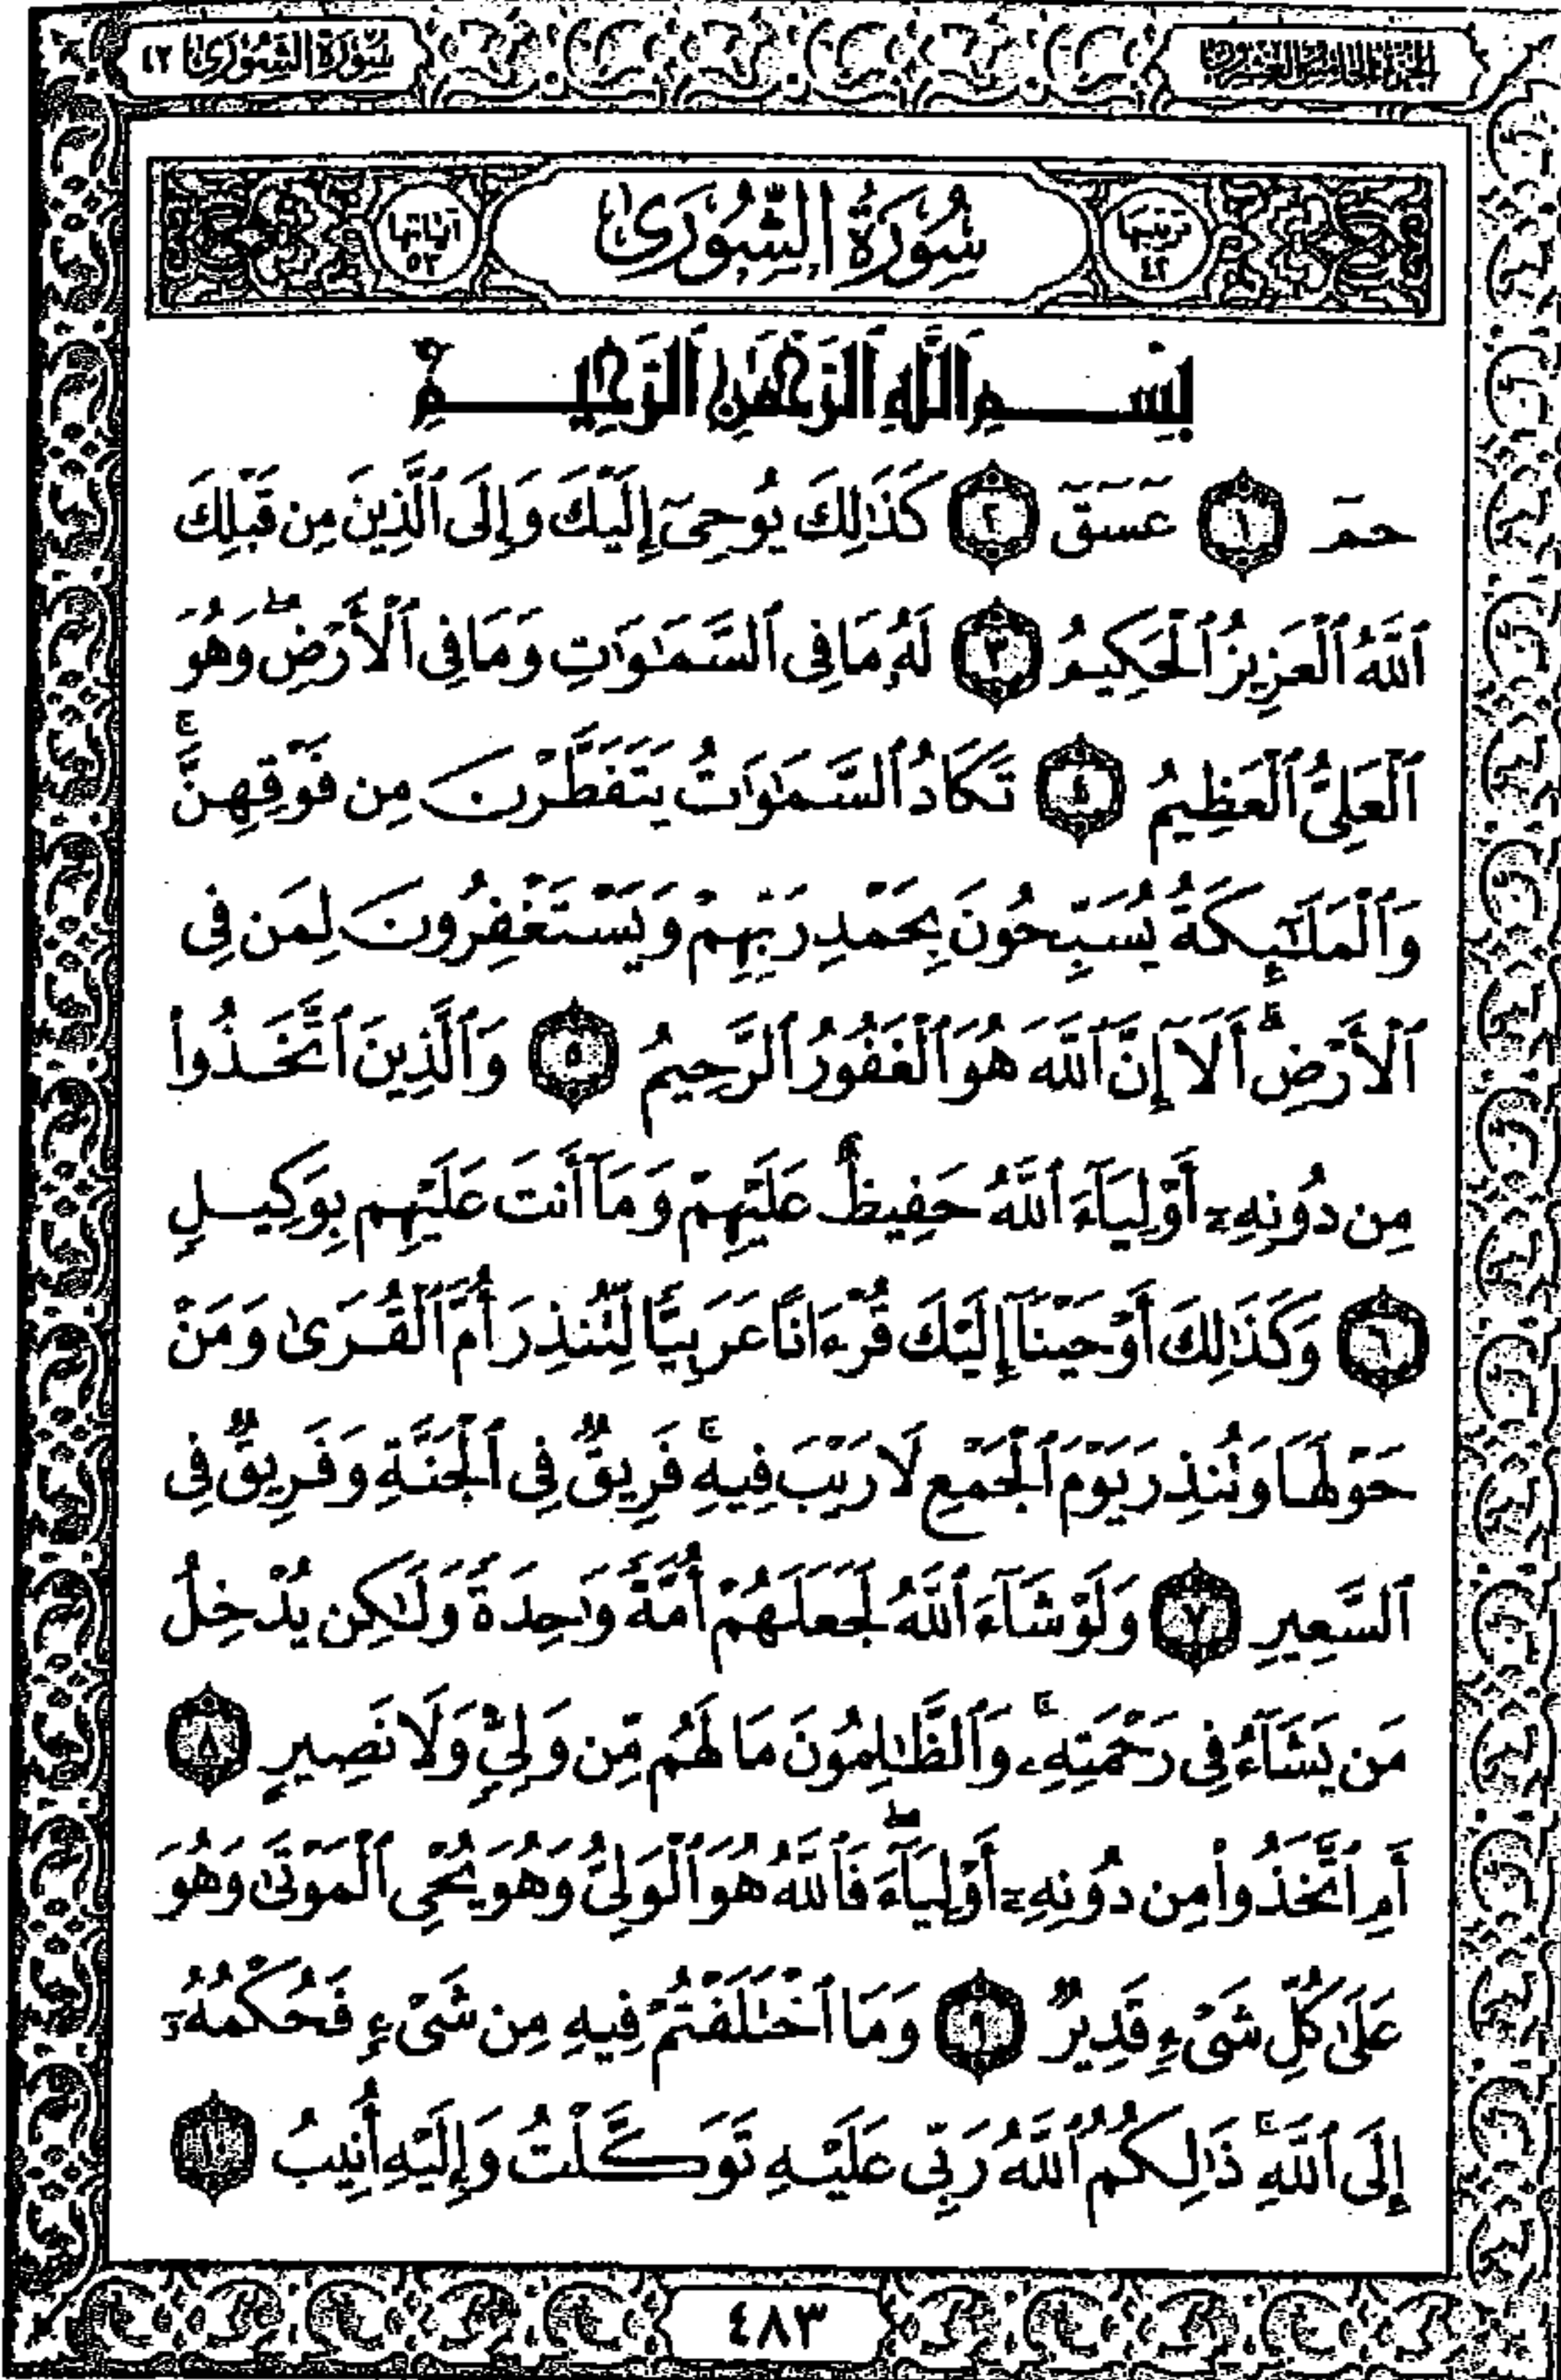 الجزء الخامس والعشرون
سُورَةُ الشُّورَىٰ ٤٢
ترتيبها ٤٢
سُورَةُ الشُّورَىٰ
آياتها ٥٣
بِسْمِ ٱللَّهِ ٱلرَّحْمَٰنِ ٱلرَّحِيمِ
حمٓ ١ عٓسٓقٓ ٢ كَذَٰلِكَ يُوحِىٓ إِلَيْكَ وَإِلَى ٱلَّذِينَ مِن قَبْلِكَ
ٱللَّهُ ٱلْعَزِيزُ ٱلْحَكِيمُ ٣ لَهُۥ مَا فِى ٱلسَّمَٰوَٰتِ وَمَا فِى ٱلْأَرْضِۖ وَهُوَ
ٱلْعَلِىُّ ٱلْعَظِيمُ ٤ تَكَادُ ٱلسَّمَٰوَٰتُ يَتَفَطَّرْنَ مِن فَوْقِهِنَّۚ
وَٱلْمَلَٰٓئِكَةُ يُسَبِّحُونَ بِحَمْدِ رَبِّهِمْ وَيَسْتَغْفِرُونَ لِمَن فِى
ٱلْأَرْضِۗ أَلَآ إِنَّ ٱللَّهَ هُوَ ٱلْغَفُورُ ٱلرَّحِيمُ ٥ وَٱلَّذِينَ ٱتَّخَذُوا۟
مِن دُونِهِۦٓ أَوْلِيَآءَ ٱللَّهُ حَفِيظٌ عَلَيْهِمْ وَمَآ أَنتَ عَلَيْهِم بِوَكِيلٍ
٦ وَكَذَٰلِكَ أَوْحَيْنَآ إِلَيْكَ قُرْءَانًا عَرَبِيًّا لِّتُنذِرَ أُمَّ ٱلْقُرَىٰ وَمَنْ
حَوْلَهَا وَتُنذِرَ يَوْمَ ٱلْجَمْعِ لَا رَيْبَ فِيهِۚ فَرِيقٌ فِى ٱلْجَنَّةِ وَفَرِيقٌ فِى
ٱلسَّعِيرِ ٧ وَلَوْ شَآءَ ٱللَّهُ لَجَعَلَهُمْ أُمَّةً وَٰحِدَةً وَلَٰكِن يُدْخِلُ
مَن يَشَآءُ فِى رَحْمَتِهِۦۚ وَٱلظَّٰلِمُونَ مَا لَهُم مِّن وَلِىٍّ وَلَا نَصِيرٍ ٨
أَمِ ٱتَّخَذُوا۟ مِن دُونِهِۦٓ أَوْلِيَآءَۖ فَٱللَّهُ هُوَ ٱلْوَلِىُّ وَهُوَ يُحْىِ ٱلْمَوْتَىٰ وَهُوَ
عَلَىٰ كُلِّ شَىْءٍ قَدِيرٌ ٩ وَمَا ٱخْتَلَفْتُمْ فِيهِ مِن شَىْءٍ فَحُكْمُهُۥٓ
إِلَى ٱللَّهِۚ ذَٰلِكُمُ ٱللَّهُ رَبِّى عَلَيْهِ تَوَكَّلْتُ وَإِلَيْهِ أُنِيبُ ١٠
٤٨٣